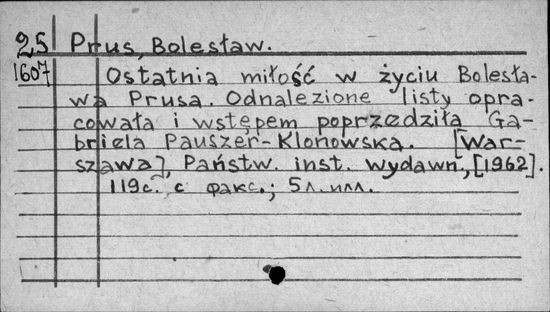 25 Prus, Bolesław.
1607 Ostatnia miłość w życiu Bolesła-
wa Prusa. Odnalezione listy opra-
cowała i wstępem poprzedziła Ga-
briela Pauszer-Klonowska. [War-
szawa], Państw. inst. wydawn., [1962].
119с. с факс.; 5л. илл.